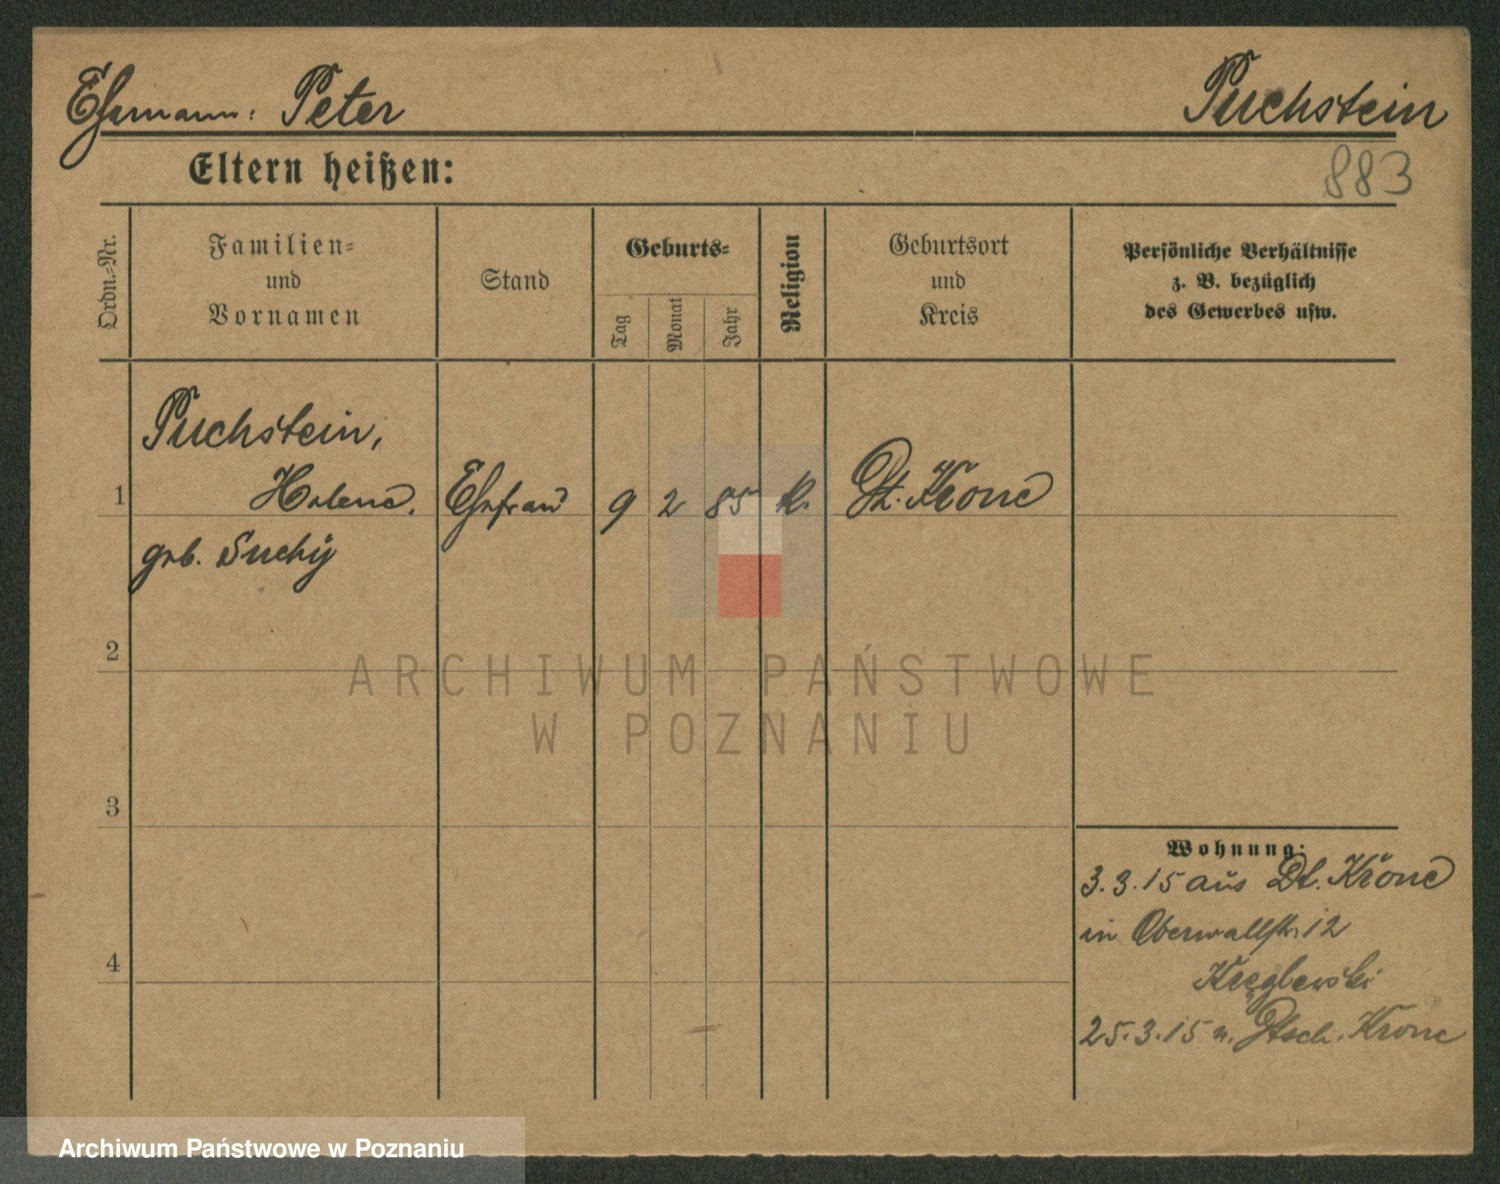 Ehemann: Peter Puchstein
883
Eltern heißen:
Ordn.-Nr.
Familien-
und
Vornamen
Stand
Geburts-
Tag Monat Jahr
Religion
Geburtsort
und
Kreis
Persönliche Verhältnisse
z. B. bezüglich
des Gewerbes usw.
Puchstein,
1 Helene, Ehefrau 9 2 85 k. Dt. Krone
geb. Suchy
2
3
4
Wohnung:
3.3.15 aus Dt. Krone
in Oberwallstr. 12
Kręglewski
25.3.15 n. Dtsch. Krone
ARCHIWUM PAŃSTWOWE
W POZNANIU
Archiwum Państwowe w Poznaniu